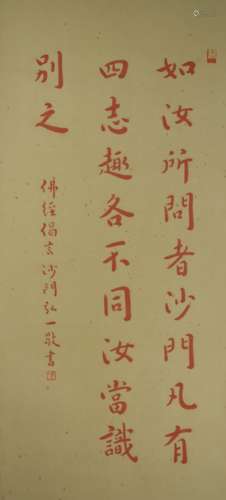 如汝所問者沙門凡有
四志趣各不同汝當識
別之
佛經偈言沙門弘一敬書